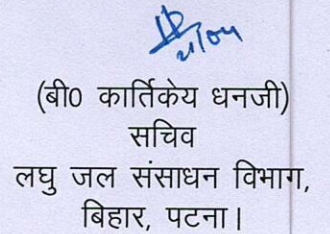 21/04
(बी0 कार्तिकेय धनजी)
सचिव
लघु जल संसाधन विभाग,
बिहार, पटना।